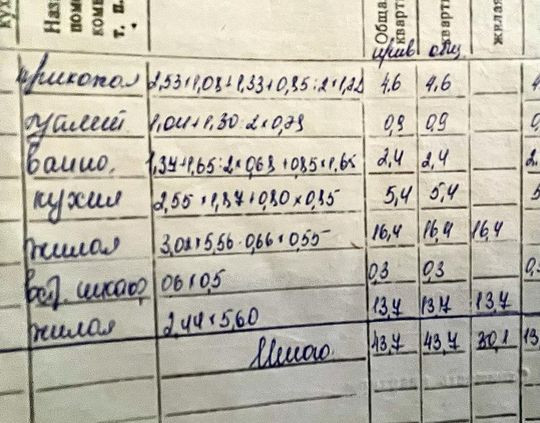 Общая
квартир
жилая
прив общ.
2,53×1,08+1,33+0,85:2×1,22 4,6 4,6
1,04+1,30:2×0,79 0,9 0,9
ванно. 1,37+1,65:2×0,63+0,85×1,65 2,4 2,4
кухня 2,55×1,87+0,80×0,85 5,4 5,4
жилая 3,08×5,56-0,66×0,55 16,4 16,4 16,4
вст. шкаф 06×0,5 0,3 0,3
жилая 2,44×5,60 13,7 13,7 13,7
Итого. 43,7 43,7 30,1